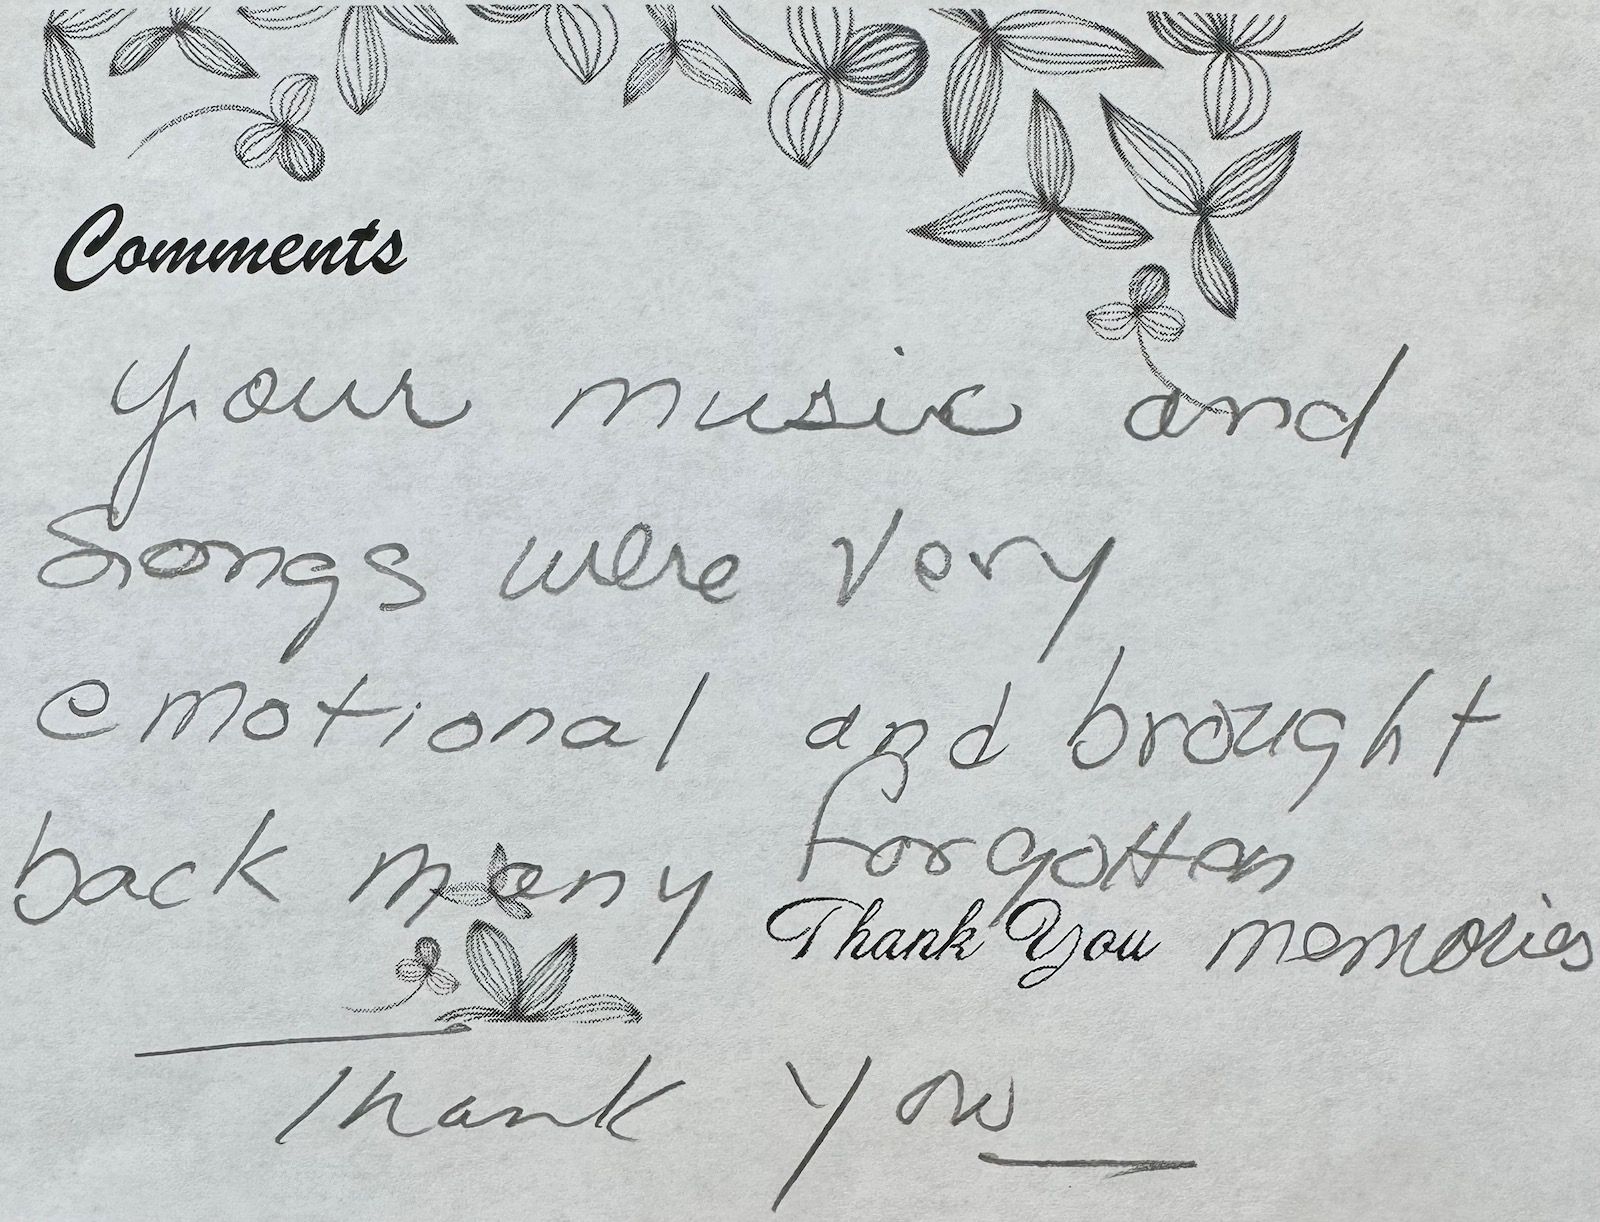 Comments
your music and
Songs were very
emotional and brought
back many forgotten
Thank You memories
Thank you